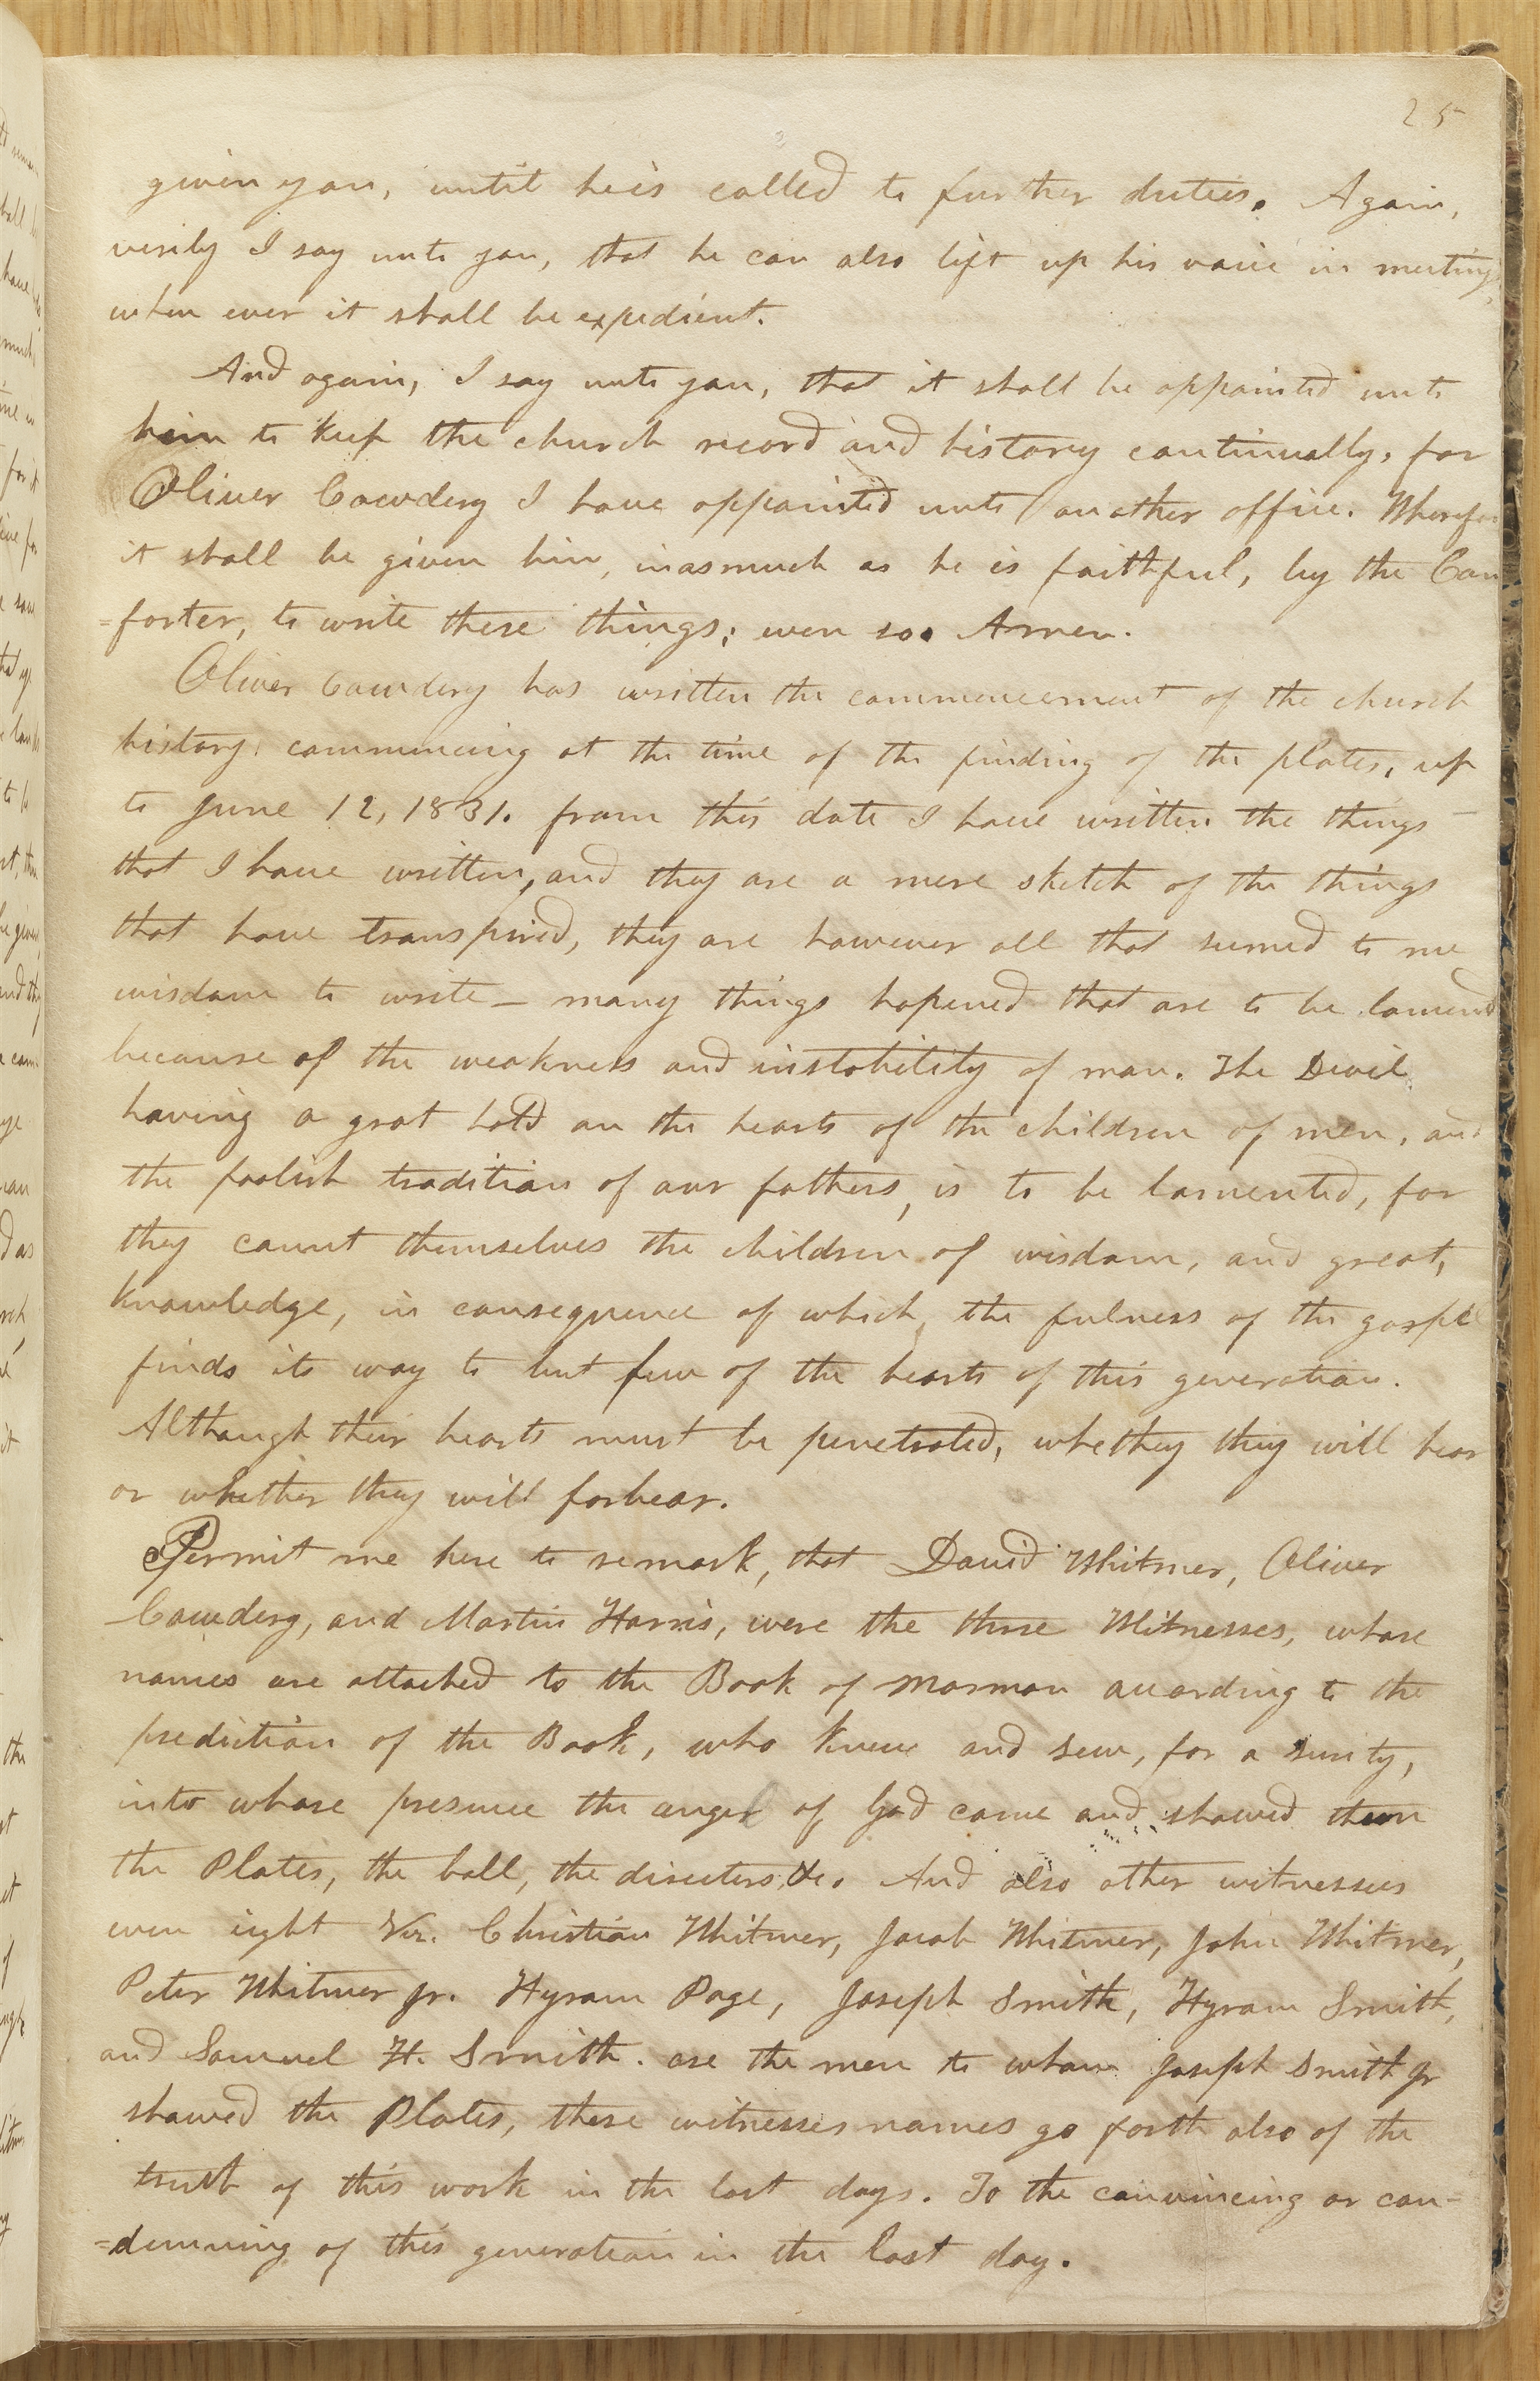 25
given you, until he is called to further duties. Again,
verily I say unto you, that he can also lift up his voice in meetings,
when ever it shall be expedient.
And again, I say unto you, that it shall be appointed unto
him to keep the church record and history continually, for
Oliver Cowdery I have appointed unto another office. Wherefore
it shall be given him, inasmuch as he is faithful, by the Com
=forter, to write these things; even so. Amen.
Oliver Cowdery has written the commencement of the church
history. commencing at the time of the finding of the plates, up
to June 12, 1831. from this date I have written the things
that I have written, and they are a mere sketch of the things
that have transpired, they are however all that seemed to me
wisdom to write— many things hapened that are to be lamend
because of the weakness and instability of man. The Devil
having a grat hold on the hearts of the children of men, and
the foolish tradition of our fathers, is to be lamented, for
they count themselves the children of wisdom, and great,
knowledge, in consequence of which, the fulness of the gospel
finds its way to but few of the hearts of this generation.
Although their hearts must be penetrated, whethey they will hear
or whether they will forbear.
Permit me here to remark, that David Whitmer, Oliver
Cowdery, and Martin Harris, were the three Witnesses, whose
names are attached to the Book of Mormon according to the
prediction of the Book, who knew and sew, for a surity,
into whose presence the angel of God came and showed them
the Plates, the ball, the directers, &c. And also other witnesses
even eight Viz. Christian Whitmer, Jacob Whitmer, John Whitmer,
Peter Whitmer Jr. Hyram Page, Joseph Smith, Hyram Smith,
and Samuel H. Smith. are the men to whom Joseph Smith Jr
showed the Plates, these witnesses names go forth also of the
truth of this work in the last days. To the convincing or con-
=demning of this generation in the last day.